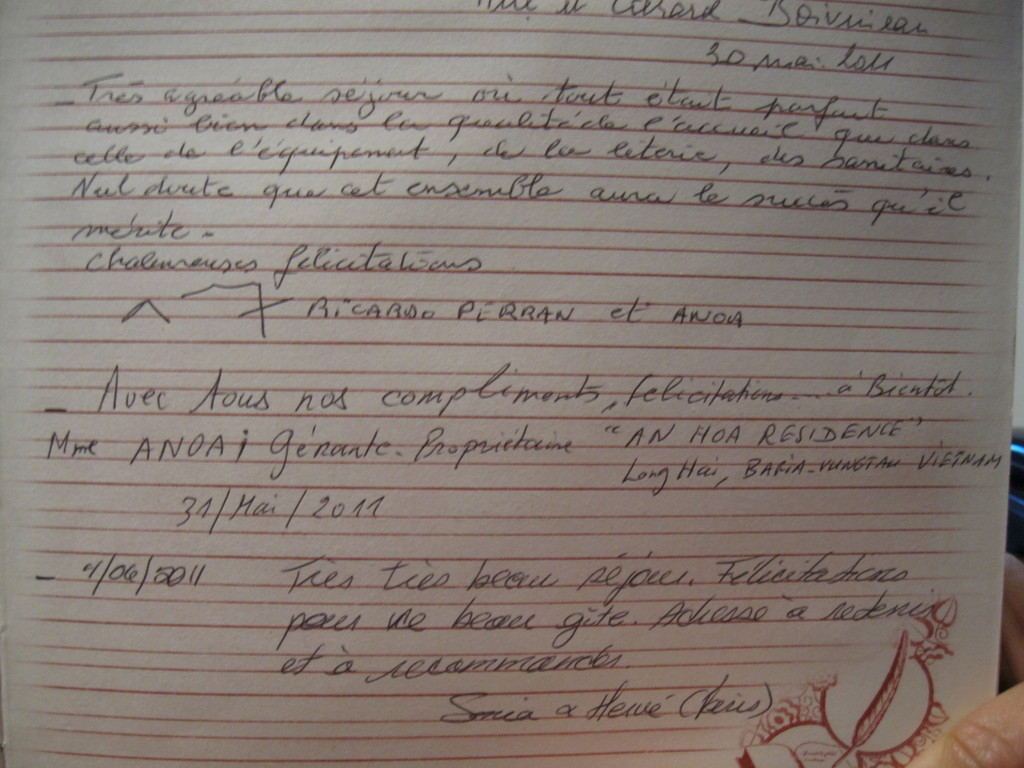 et Gérard Boivineau
30 mai 2011
- Très agréable séjour où tout était parfait
aussi bien dans la qualité de l'accueil que dans
celle de l'équipement, de la literie, des sanitaires.
Nul doute que cet ensemble aura le succès qu'il
mérite.
Chaleureuses félicitations
RICARDO PERRAN et ANOA
- Avec tous nos compliments, félicitations.... à Bientôt.
Mme ANOAI Gérante-Propriétaire "AN HOA RESIDENCE"
Long Hai, BARIA-VUNGTAU VIETNAM
31/Mai/2011
- 4/06/2011 Très très beau séjour. Félicitations
pour ce beau gîte. Adresse à retenir
et à recommander.
Sonia & Hervé (Paris)